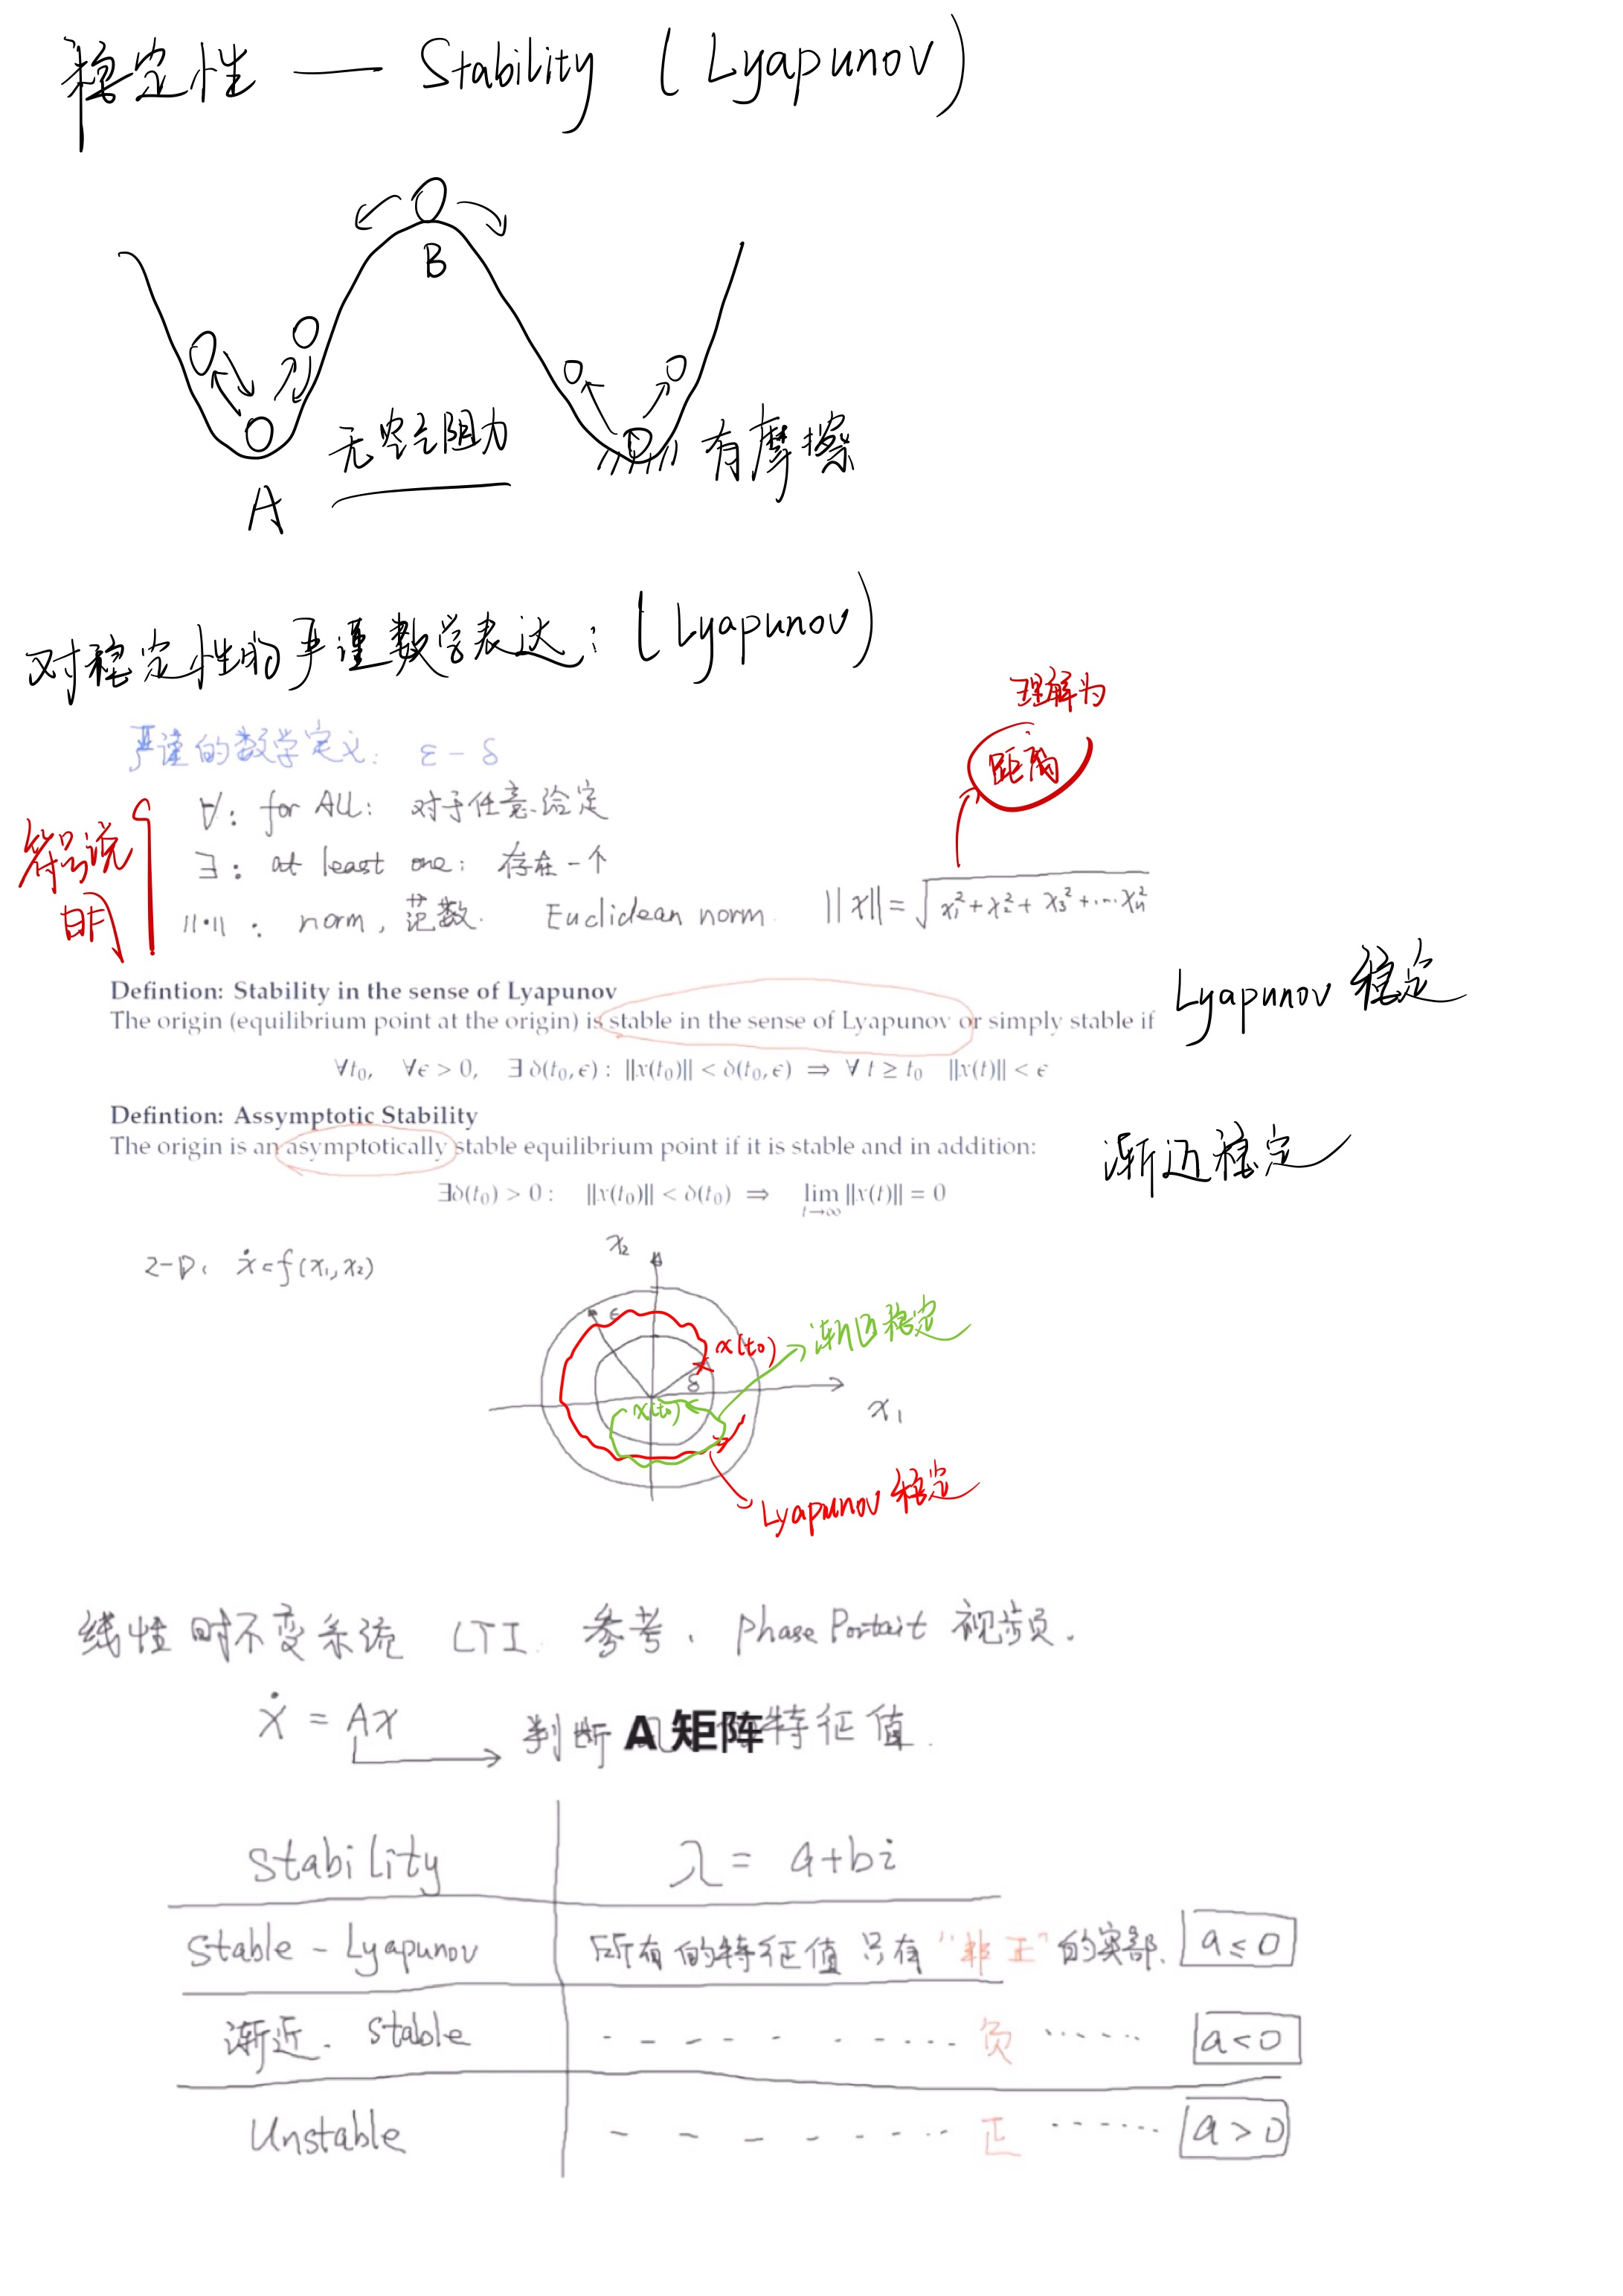 稳定性 — Stability (Lyapunov)
B
无空气阻力
有摩擦
A
对稳定性的严谨数学表达: (Lyapunov)
理解为
距离
严谨的数学定义: ε - δ
符号说明
∀: for ALL: 对于任意给定
∃: at least one: 存在一个
||·||: norm, 范数. Euclidean norm. ||x|| = √(x₁² + x₂² + x₃² + ... xₙ²)
Defintion: Stability in the sense of Lyapunov
The origin (equilibrium point at the origin) is stable in the sense of Lyapunov or simply stable if
Lyapunov 稳定
∀t₀, ∀ϵ > 0, ∃ δ(t₀, ϵ) : ||x(t₀)|| < δ(t₀, ϵ) ⇒ ∀ t ≥ t₀ ||x(t)|| < ϵ
Defintion: Assymptotic Stability
The origin is an asymptotically stable equilibrium point if it is stable and in addition:
渐近稳定
∃δ(t₀) > 0 : ||x(t₀)|| < δ(t₀) ⇒ lim t→∞ ||x(t)|| = 0
2-D: ẋ = f(x₁, x₂)
x₂
ε
x(t₀)
渐近稳定
δ
x(t₀)
x₁
Lyapunov 稳定
线性时不变系统 LTI. 参考. Phase Portait 视频.
ẋ = Ax
判断 A 矩阵 特征值.
Stability λ = a+bi
Stable - Lyapunov 所有的特征值只有"非正"的实部. a ≤ 0
渐近. Stable 负 a < 0
Unstable 正 a > 0